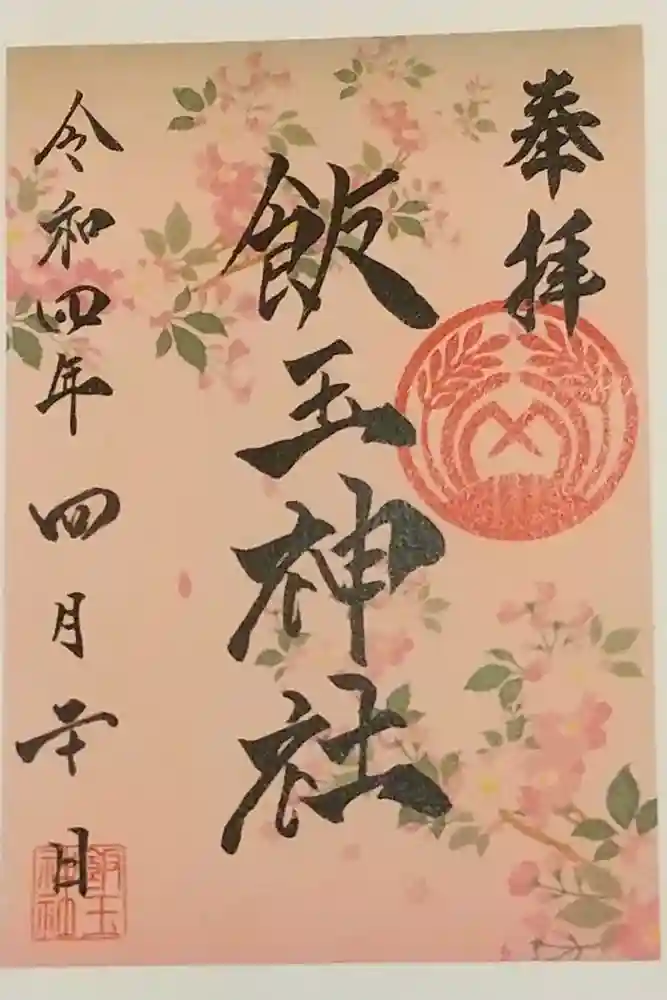 奉拝
飯玉神社
令和四年四月二十日
飯玉
神社